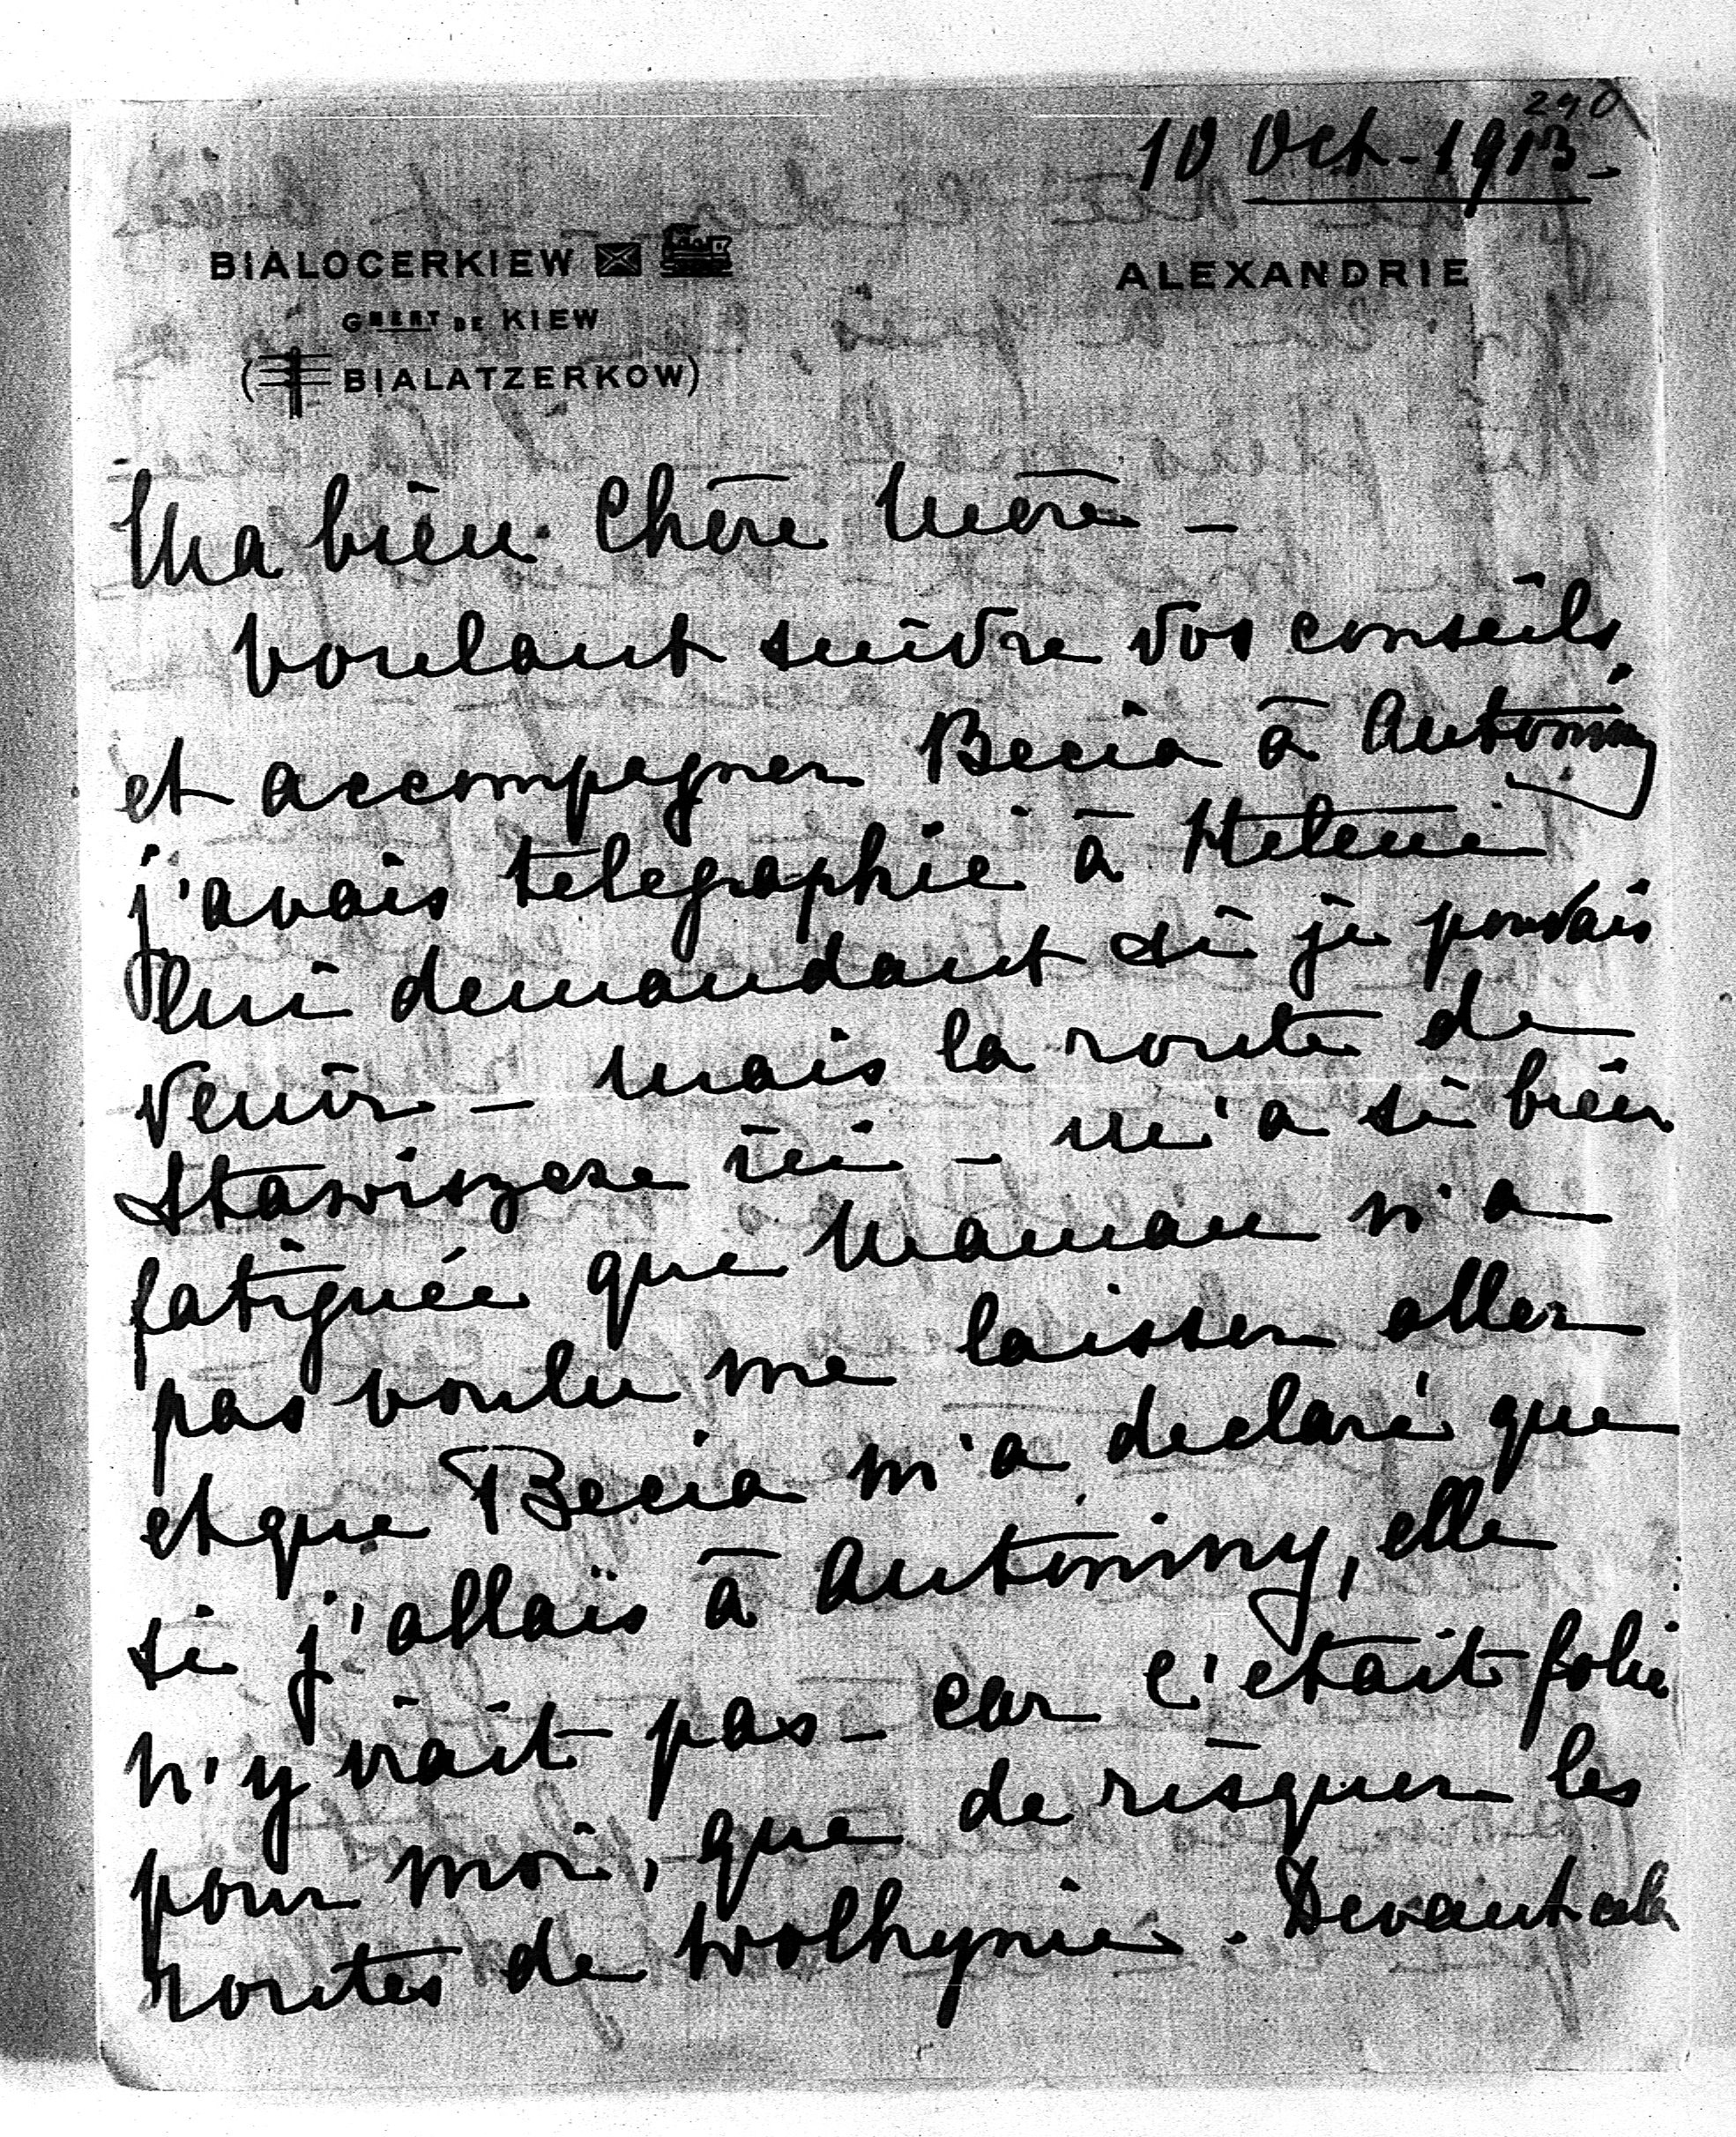 290
10 Oct-1913-
BIALOCERKIEW
ALEXANDRIE
GBERT DE KIEW
(BIALATZERKOW)
Ma bien Chère Mère -
voulant suivre vos conseils
et accompagner Becia à Antoniny
j'avais telegraphie à Helene
lui demandant si je pouvais
venir - mais la route de
Stawiszcze ici - m'a si bien
fatiguée que Maman n'a
pas voulu me laisser aller
et que Becia m'a declaré que
si j'allais à Antoniny, elle
n'y irait pas - car c'etait folie
pour moi, que de risquer les
routes de Wolhynie. Devant cela